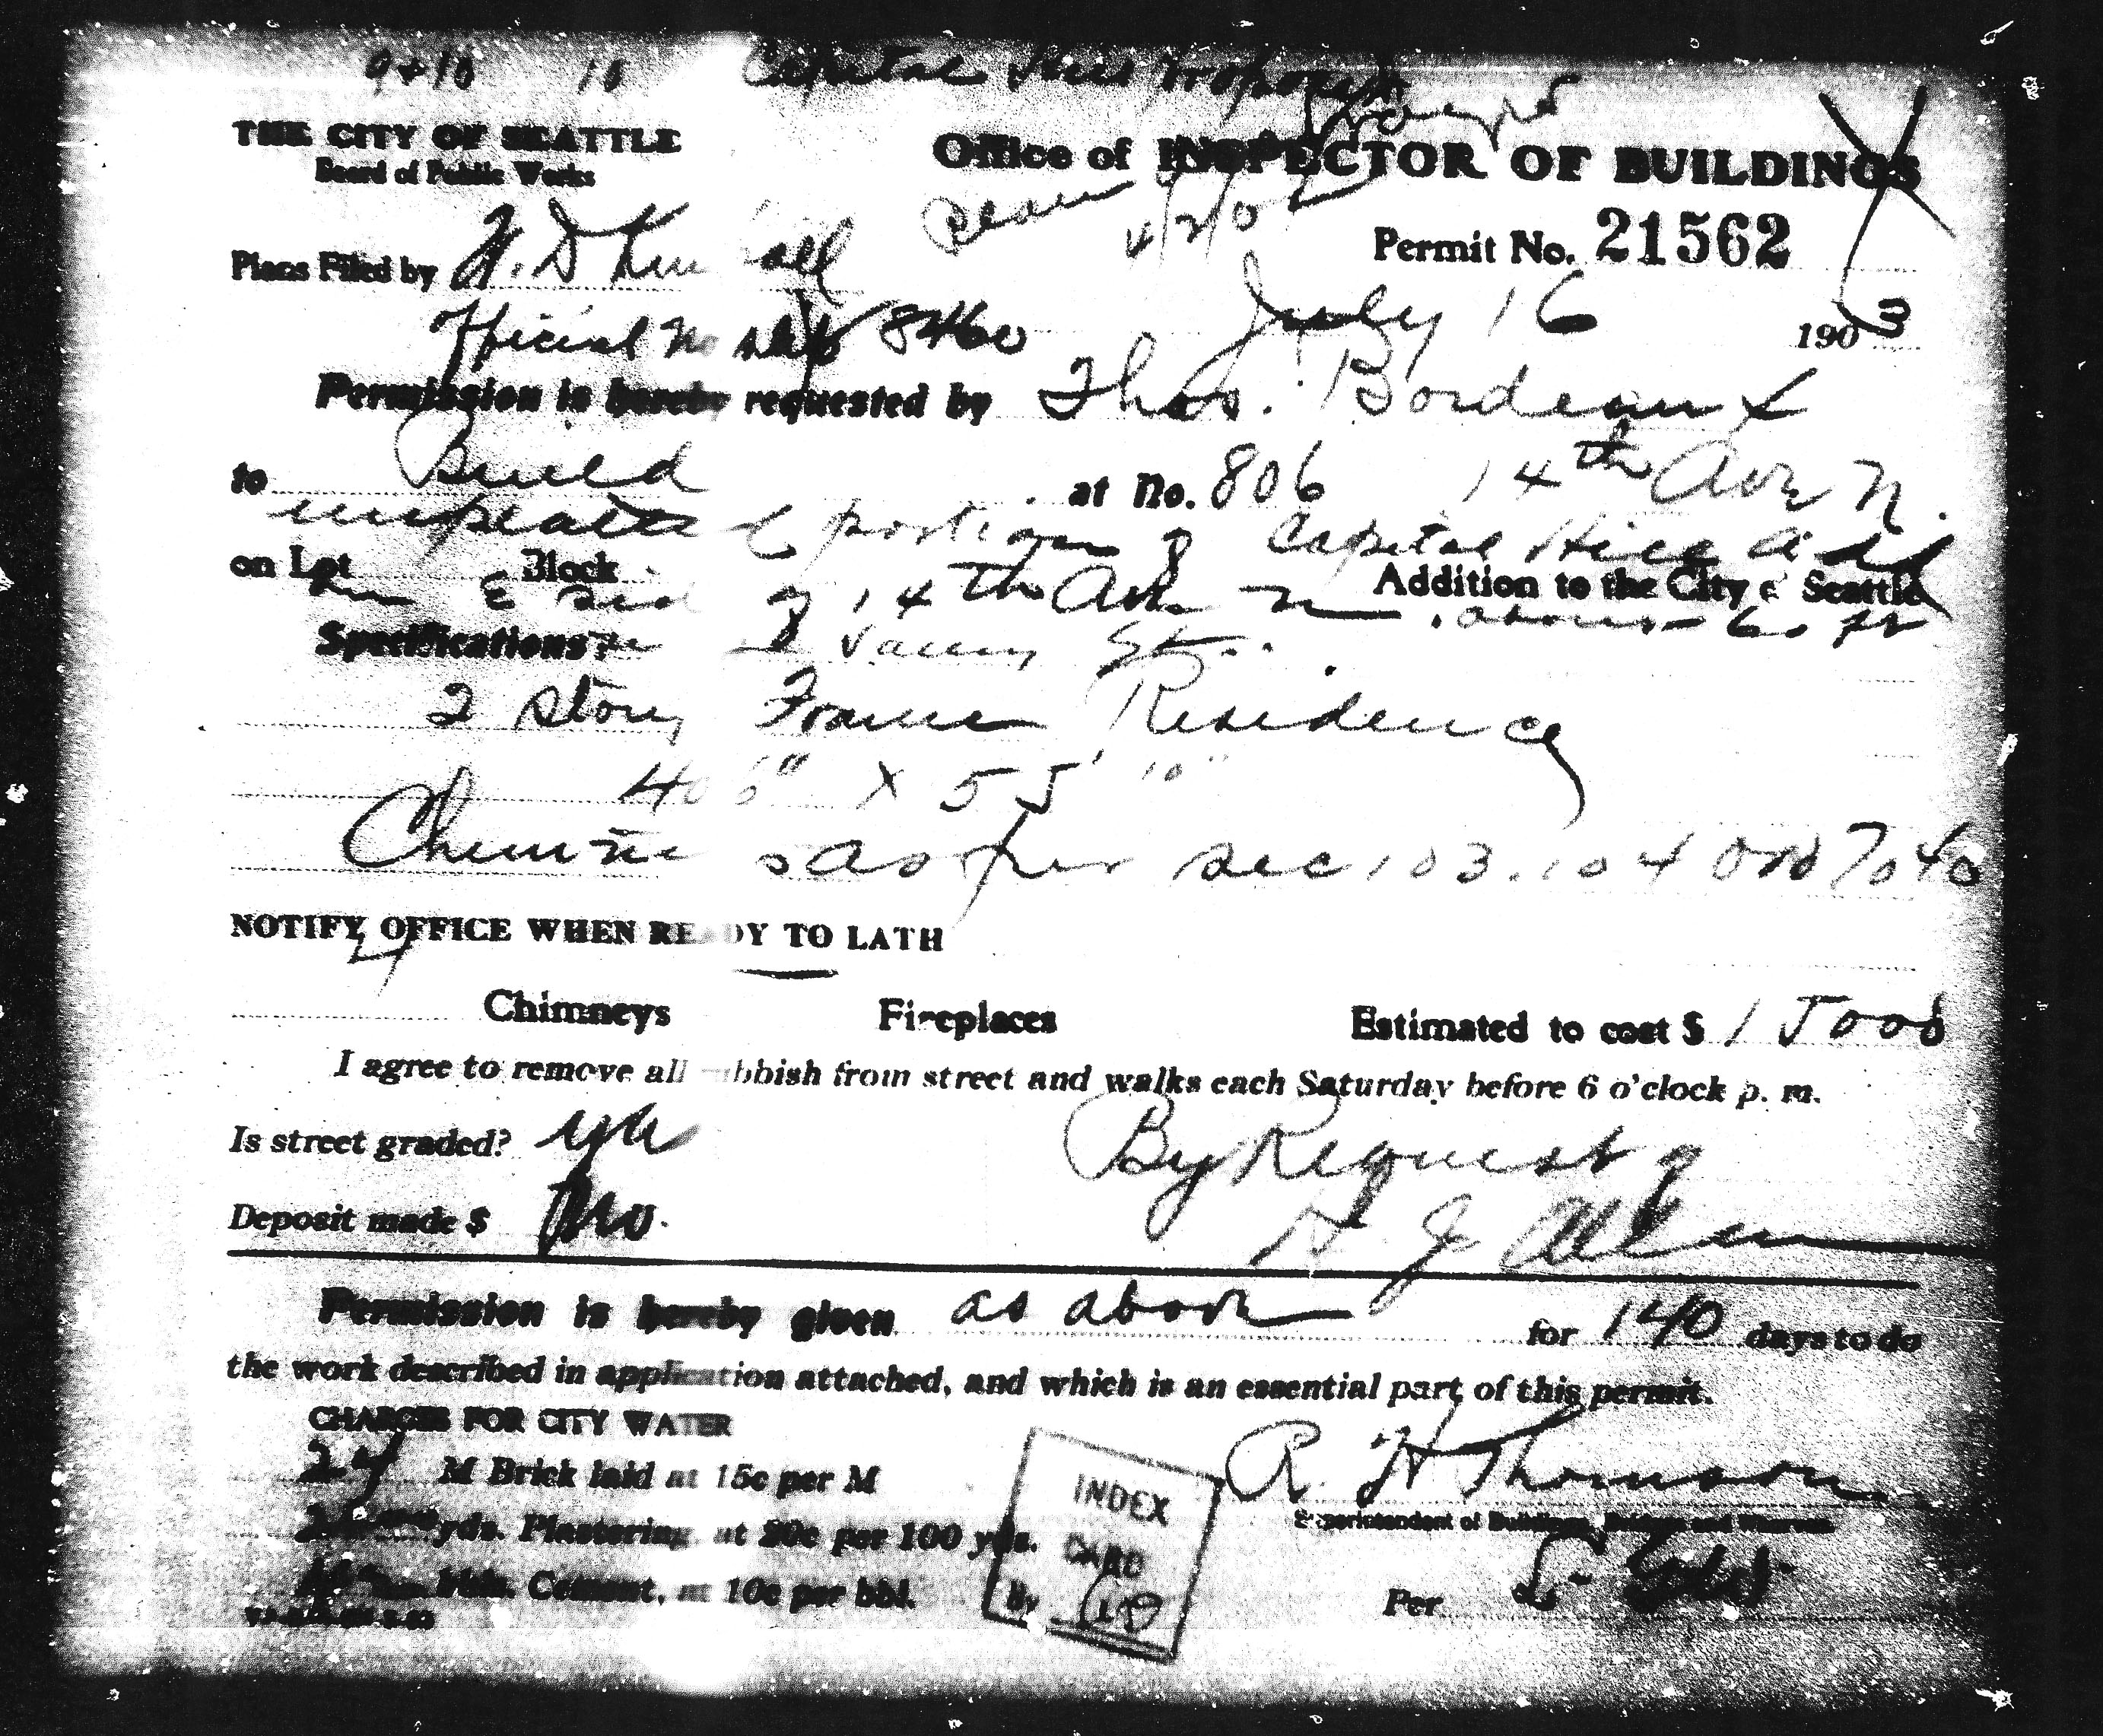 9+10 10 Capital Hill
THE CITY OF SEATTLE
Board of Public Works
Office of INSPECTOR OF BUILDINGS
Permit No. 21562
Plans Filed by W. D Kimball
Official No 8460 July 16 1903
Permission is hereby requested by Thos. Bordeaux
to Build at No. 806 14th Ave N.
unplatted portion of Capital Hill Add
on Lot Block Addition to the City of Seattle
on E side of 14th Ave N. about 60 ft
Specifications: of St.
2 story Frame Residence
40 6" X 55' 10"
Chimnies as per sec 103.104 Ord 7040
NOTIFY OFFICE WHEN READY TO LATH
Chimneys Fireplaces Estimated to cost $ 15000
I agree to remove all rubbish from street and walks each Saturday before 6 o'clock p. m.
Is street graded? yes By Request of
Deposit made $ no. H J Allen
Permission is hereby given as above for 140 days to do
the work described in application attached, and which is an essential part of this permit.
CHARGES FOR CITY WATER
24 M Brick laid at 15c per M
R. H Thomson
yds. Plastering, at 20c per 100 yds.
Superintendent of Buildings, Bridges and Wharves
bbls. Cement, at 10c per bbl.
Per
INDEX
CARD
By